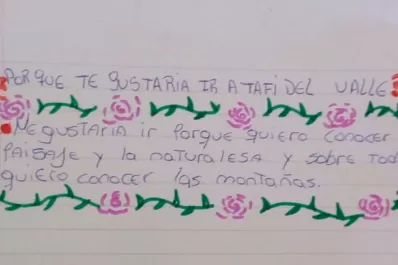 PORQUE TE GUSTARIA IR A TAFI DEL VALLE
ME GUSTARIA ir Porque quiero conocer
PAISAJE y la naturalesa y sobre tod
quiero conocer las montañas.